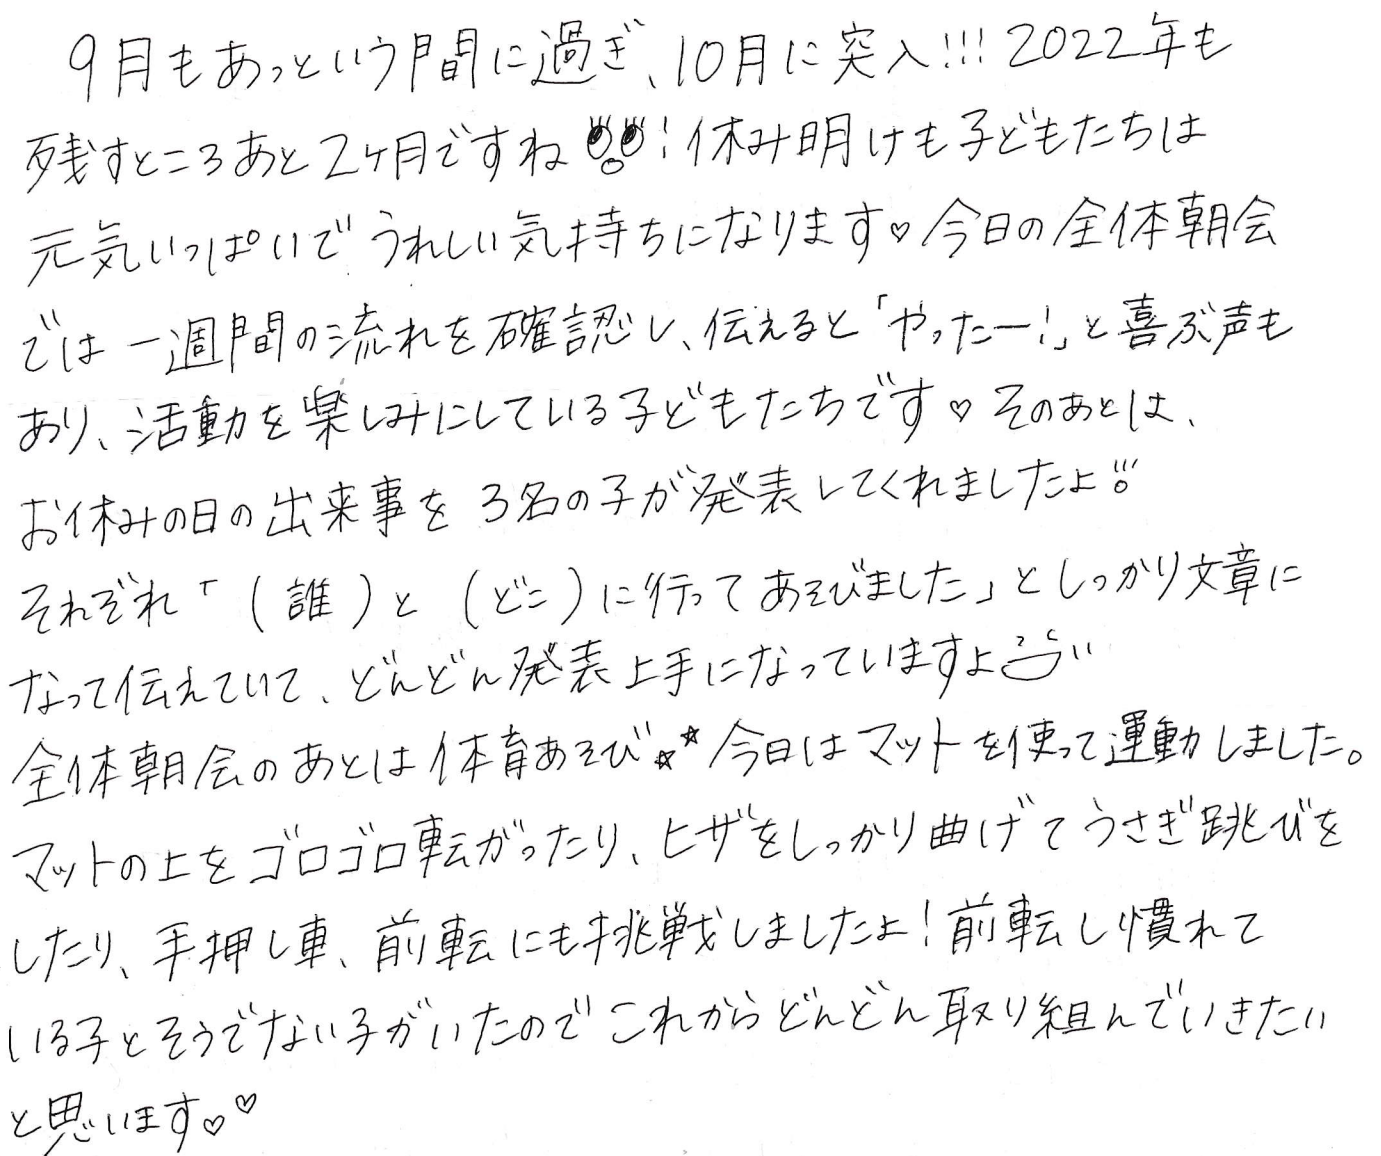 9月もあっという間に過ぎ、10月に突入!!! 2022年も
残すところあと2ヶ月ですね!休み明けも子どもたちは
元気いっぱいでうれしい気持ちになります♡今日の全体朝会
では一週間の流れを確認し、伝えると「やったー!」と喜ぶ声も
あり、活動を楽しみにしている子どもたちです♡そのあとは、
お休みの日の出来事を3名の子が発表してくれましたよ!!
それぞれ「(誰)と(どこ)に行ってあそびました」としっかり文章に
なって伝えていて、どんどん発表上手になっていますよ
全体朝会のあとは体育あそび☆☆今日はマットを使って運動しました。
マットの上をゴロゴロ転がったり、ヒザをしっかり曲げてうさぎ跳びを
したり、手押し車、前転にも挑戦しましたよ!前転し慣れて
いる子とそうでない子がいたのでこれからどんどん取り組んでいきたい
と思います♡♡